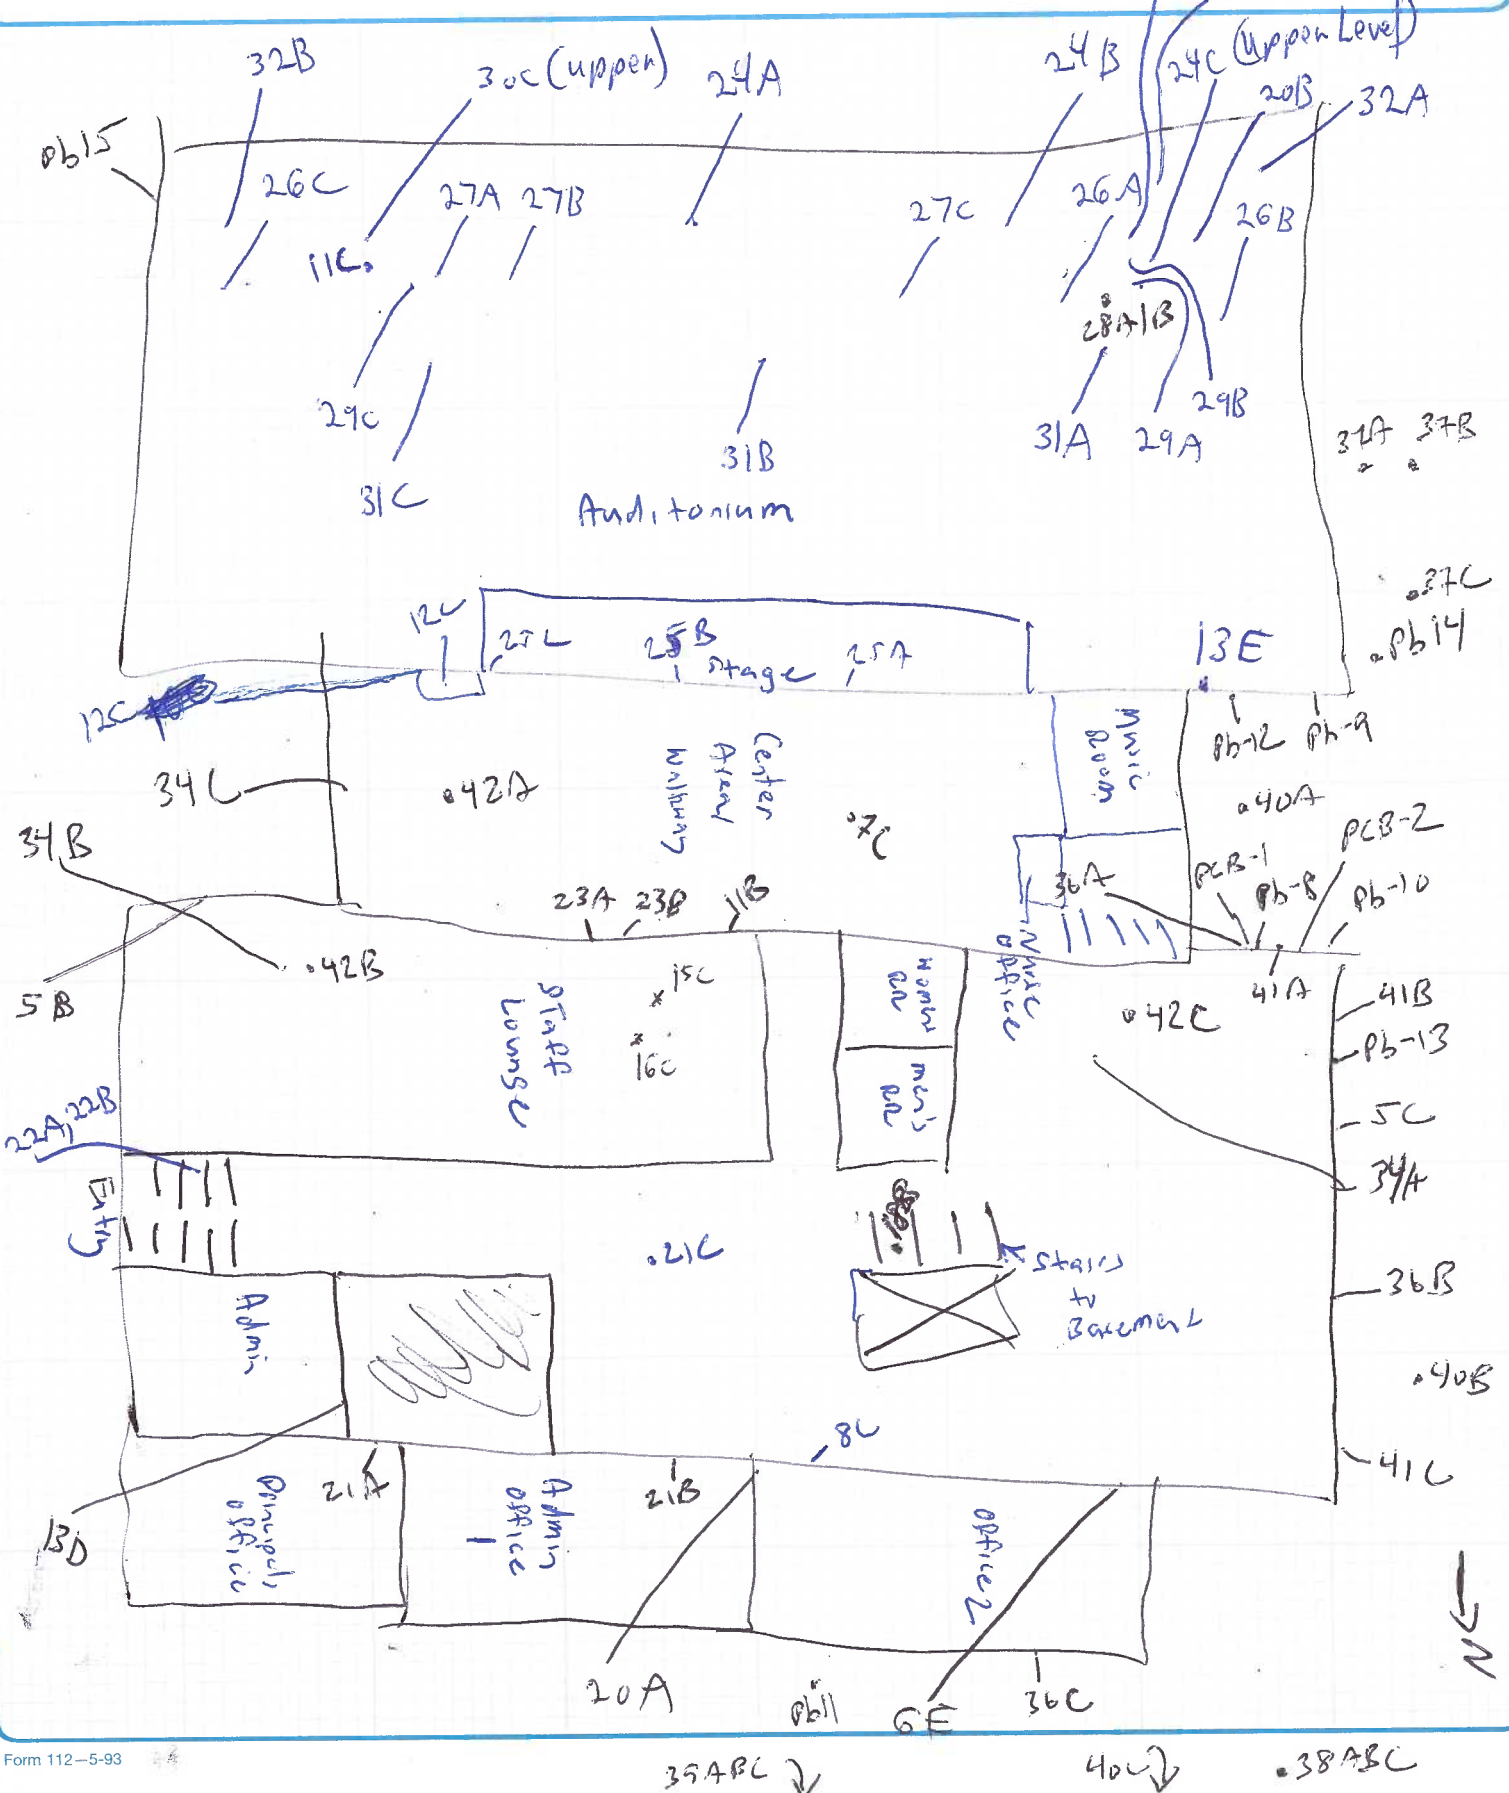 32B
30C (upper)
24A
24B
24C (Upper Level)
20B
32A
pb15
26C
27A
27B
27C
26A
26B
11C
28A/B
29C
31C
31B
31A
29A
29B
37A
37B
Auditorium
37C
Pb14
12C
25C
25B
Stage
25A
13E
12C
Pb-12
Pb-9
Music
Room
Center
Area/
Walkway
34C
42A
7C
40A
34B
PCB-2
PCB-1
36A
Pb-8
Pb-10
23A
23B
11B
5B
42B
15C
16C
Staff
Lounge
Women's
RR
Men's
RR
Office
42C
41A
41B
Pb-13
5C
34A
22A, 22B
Entry
21C
Stairs
to
Basement
36B
Admin
40B
8C
41C
21A
21B
13D
Principal's
office
Admin
office
1
office 2
20A
pb11
6E
36C
N
Form 112—5-93
39ABC
40C
38ABC